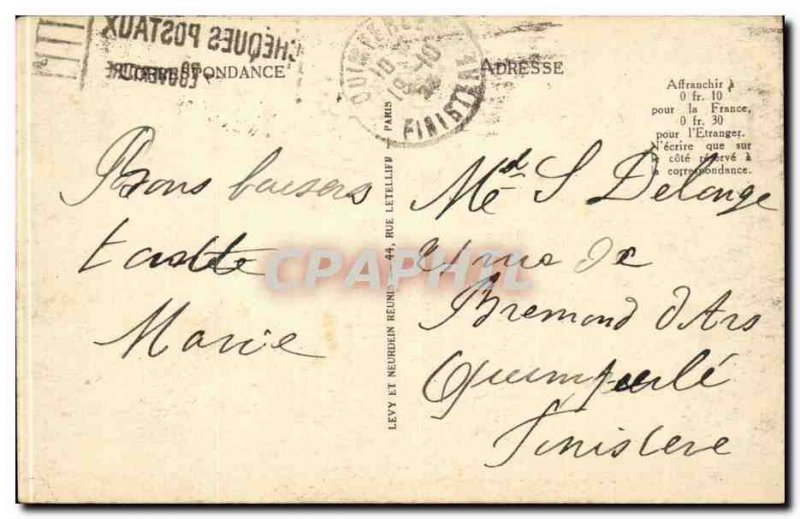 CHÈQUES POSTAUX
CORRESPONDANCE
ADRESSE
QUIMPERLÉ
FINISTERE
Affranchir à
0 fr. 10
pour la France,
0 fr. 30
pour l'Etranger.
N'écrire que sur
le côté réservé à
la correspondance.
Bons baisers
Marie
LEVY ET NEURDEIN RÉUNIS 44, RUE LETELLIER PARIS
CPAPHIL
Md S Delonge
rue de
Bremond d'Ars
Quimperlé
Finistere